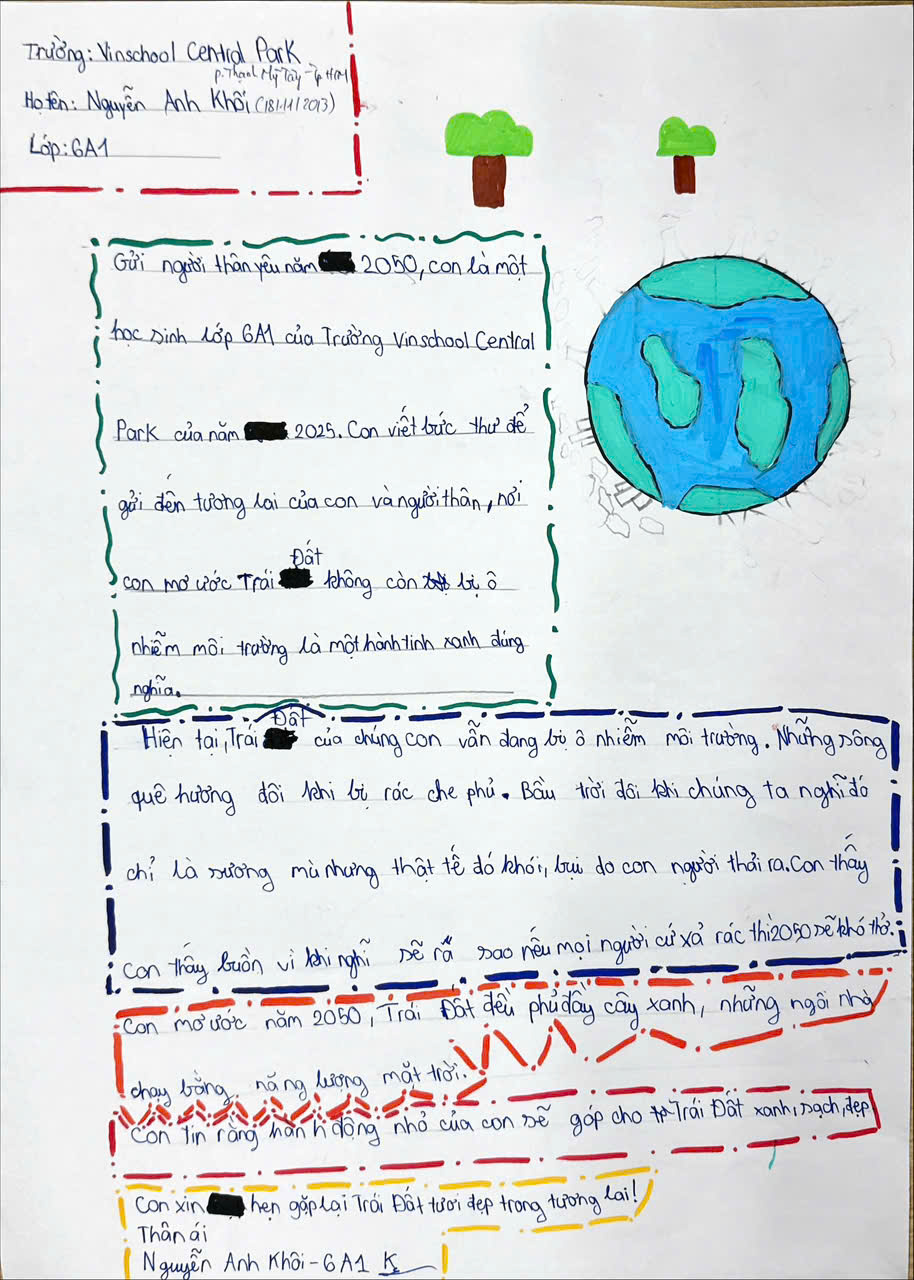 Trường: Vinschool Central Park
P. Thạnh Mỹ Tây - Tp HCM
Họ tên: Nguyễn Anh Khôi (18/11/2013)
Lớp: 6A1
Gửi người thân yêu năm 2050, con là một
học sinh lớp 6A1 của Trường Vinschool Central
Park của năm 2025. Con viết bức thư để
gửi đến tương lai của con và người thân, nơi
Đất
con mơ ước Trái không còn bị ô
nhiễm môi trường là một hành tinh xanh đúng
nghĩa.
Đất
Hiện tại, Trái của chúng con vẫn đang bị ô nhiễm môi trường. Những sông
quê hương đôi khi bị rác che phủ. Bầu trời đôi khi chúng ta nghĩ đó
chỉ là sương mù nhưng thật tế đó khói, bụi do con người thải ra. Con thấy
Con thấy buồn vì khi nghĩ sẽ rấ sao nếu mọi người cứ xả rác thì 2050 sẽ khó thở.
Con mơ ước năm 2050, Trái Đất đều phủ đầy cây xanh, những ngôi nhà
chạy bằng năng lượng mặt trời.
Con tin rằng hành động nhỏ của con sẽ góp cho Trái Đất xanh, sạch, đẹp
Con xin hẹn gặp lại Trái Đất tươi đẹp trong tương lai!
Thân ái
Nguyễn Anh Khôi - 6A1 K